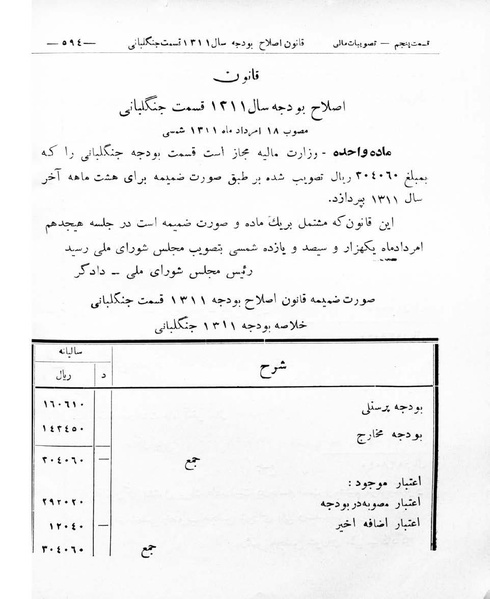 قسمت پنجم — تصویبات مالی    قانون اصلاح بودجه سال ۱۳۱۱ قسمت جنگلبانی    —٥٩٤—
قانون
اصلاح بودجه سال ۱۳۱۱ قسمت جنگلبانی
مصوب ۱۸ امرداد ماه ۱۳۱۱ شمسی
ماده واحده - وزارت مالیه مجاز است قسمت بودجه جنگلبانی را که
بمبلغ ۳۰٤٠٦٠ ریال تصویب شده بر طبق صورت ضمیمه برای هشت ماهه آخر
سال ۱۳۱۱ بپردازد.
این قانون که مشتمل بر یك ماده و صورت ضمیمه است در جلسه هیجدهم
امردادماه یکهزار و سیصد و یازده شمسی بتصویب مجلس شورای ملی رسید
رئیس مجلس شورای ملی — دادگر
صورت ضمیمه قانون اصلاح بودجه ۱۳۱۱ قسمت جنگلبانی
خلاصه بودجه ۱۳۱۱ جنگلبانی
سالیانه
شرح    د    ریال
بودجه پرسنلی    ۱٦٠٦١٠
بودجه مخارج    ۱٤٣٤٥٠
جمع    —    ۳۰٤٠٦٠
اعتبار موجود :
اعتبار مصوبه در بودجه    ۲۹۲۰۲۰
اعتبار اضافه اخیر    —    ۱۲۰٤۰
جمع    ۳۰٤٠٦٠